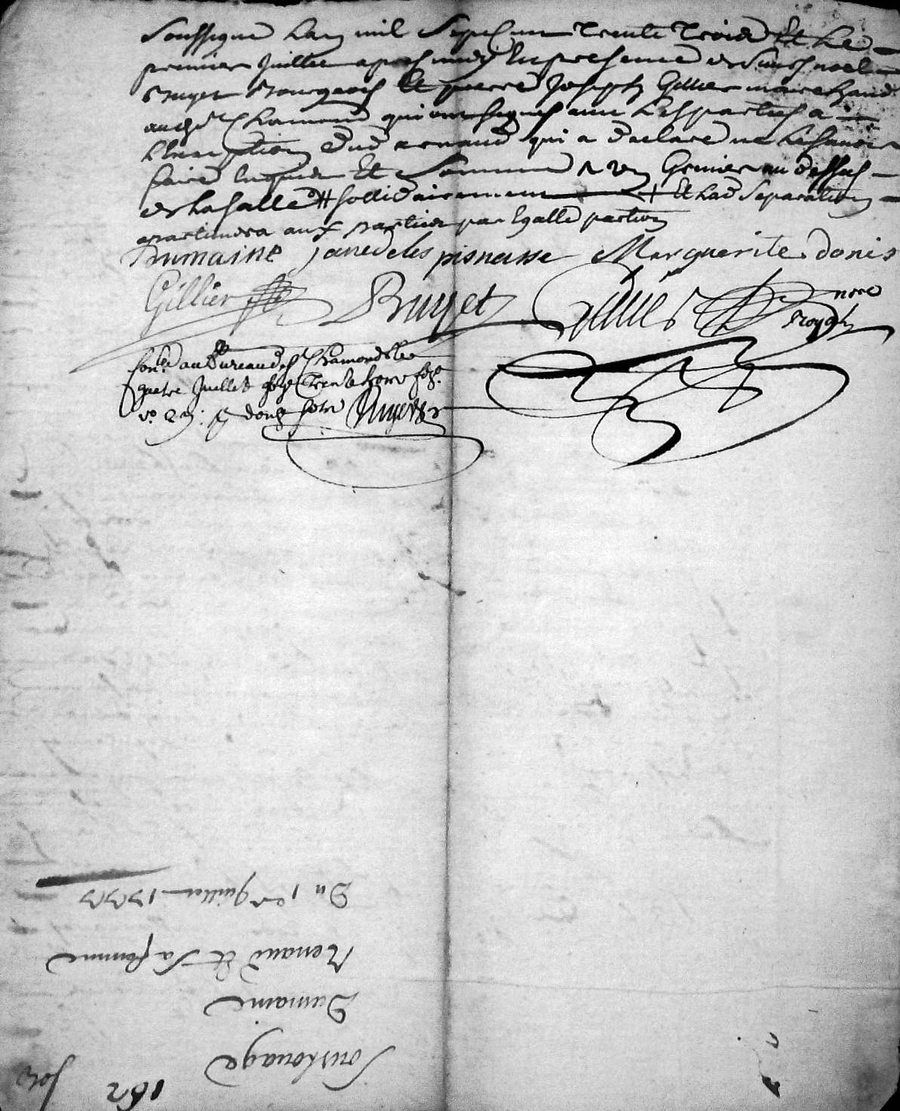 Soussigné Lan mil Sept cent Trente Trois Et Le
premier Juillet apres midy En presence de Sieurs noel
Bruyet Bourgeois Et pierre Joseph Gillier marchand
aud St Chamond qui ont signes avec Les parties a
L'Exception dud Renaud qui a declaré ne Le Scavoir
faire Enquis Et Sommé Grenier au dessus
de La Salle # sollidairement # Et Lad Separation
apartiendra aux parties par Egalle portion
Dumaine janedelespisnasse Marguerite donis
Gillier Bruyet Gillier nore
Royal
Con.lé au Bureau de St Chamond Le
quatre Juillet Trente trois
vo. R. douze sols Bruyet
Du 1er Juillet 1733
Renaud Et Sa femme
Dumaine
Souslouage
162